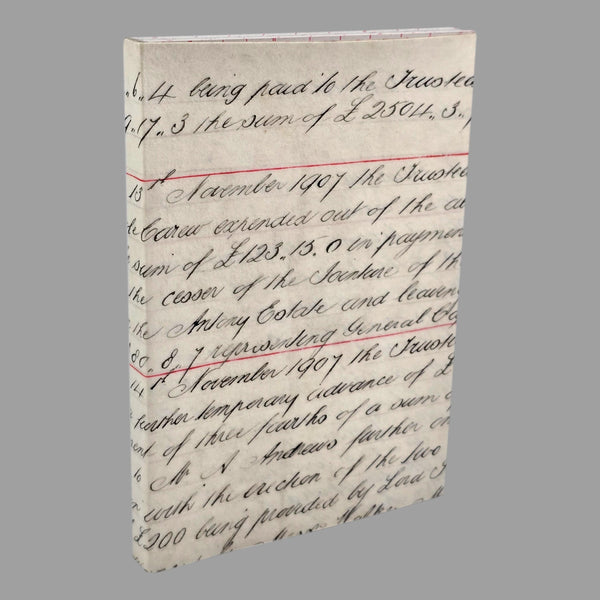 „6„4 being paid to the Trustee
„17„3 the sum of £2504„3„
13th November 1907 the Trustee
Carew expended out of the
sum of £123„15„0 in paymen
the cesser of the Jointure of th
the Antony Estate and leavin
80„8„7 representing General
14th November 1907 the Truste
further temporary advance of £
ent of three fourths of a sum
to Mr A Andrews further on
with the erection of the two
£200 being provided by Lord